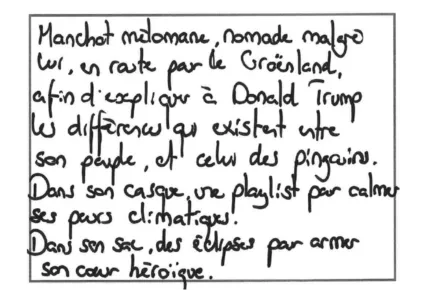 Manchot mélomane, nomade malgré
lui, en route pour le Groënland,
afin d'expliquer à Donald Trump
les différences qui existent entre
son peuple, et celui des pingouins.
Dans son casque, une playlist pour calmer
ses peurs climatiques.
Dans son sac, des éclipses pour armer
son cœur héroïque.